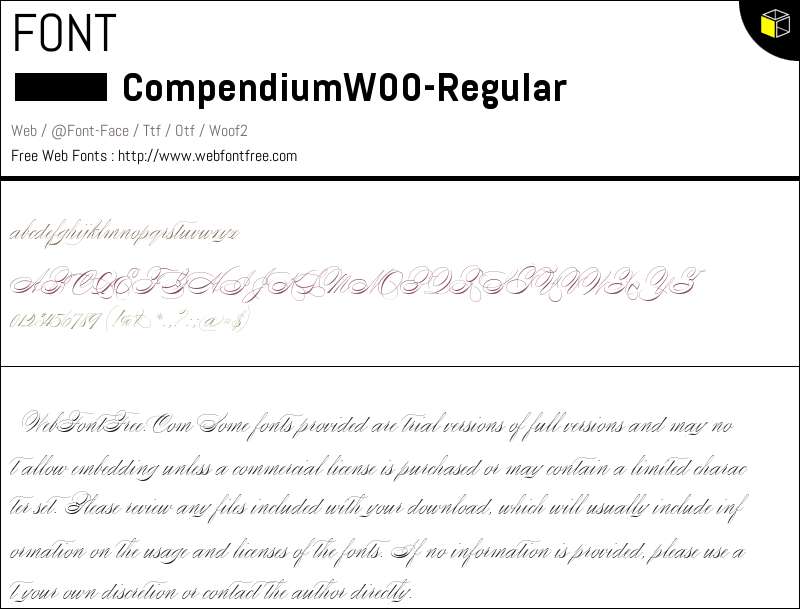 FONT
CompendiumW00-Regular
Web / @Font-Face / Ttf / Otf / Woof2
Free Web Fonts : http://www.webfontfree.com
abcdefghijklmnopqrstuvwxyz
ABCDEFGHIJKLMNOPQRSTUVWXYZ
0123456789
WebFontFree.Com Some fonts provided are trial versions of full versions and may no
t allow embedding unless a commercial license is purchased or may contain a limited charac
ter set. Please review any files included with your download, which will usually include inf
ormation on the usage and licenses of the fonts. If no information is provided, please use a
t your own discretion or contact the author directly.